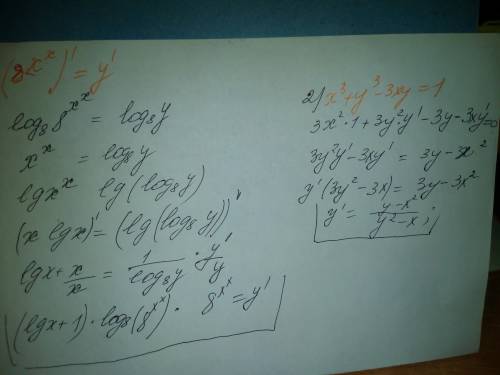 (8^{x^x})' = y'
log₈ 8^{x^x} = log₈ y
x^x = log₈ y
lg x^x lg(log₈ y)
(x lg x)' = (lg(log₈ y))'
lg x + x/x = 1/(log₈ y) · y'/y
(lg x + 1) · log₈(8^{x^x}) · 8^{x^x} = y'
2) x³ + y³ - 3xy = 1
3x² · 1 + 3y² y' - 3y - 3xy' = 0
3y² y' - 3xy' = 3y - 3x²
y'(3y² - 3x) = 3y - 3x²
y' = (y - x²)/(y² - x) ;